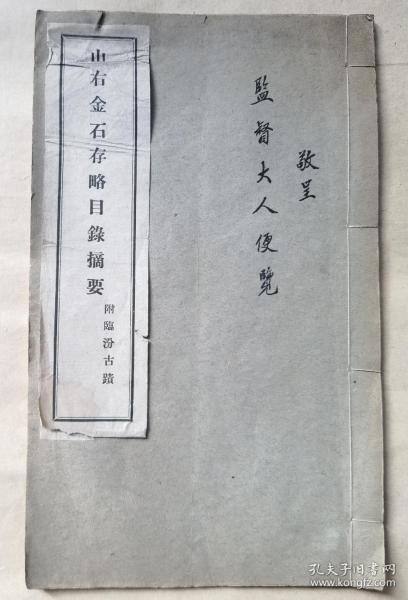 敬呈
監督大人便覽
山右金石存略目錄摘要
附臨汾古蹟
孔夫子旧书网